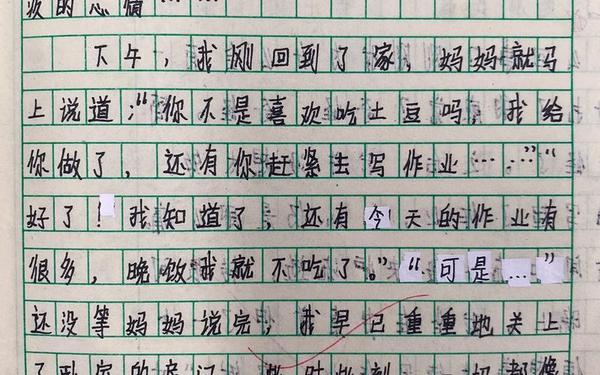 的感情……
下午，我刚回到了家，妈妈就马
上说道：“你不是喜欢吃土豆吗，我给
你做了，还有你赶紧去写作业……”“
好了！我知道了，还有今天的作业有
很多，晚饭我就不吃了。”“可是…”
还没等妈妈说完，我早已重重地关上
了 的房门，此时此刻， 妈都像